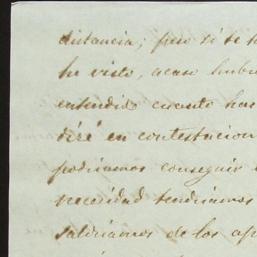 distancia; pero si se h
he visto, acaso hubi
entendido cuanto has
diré en contestacion
podriamos conseguir
necesidad tendriamos
saldriamos de los ap